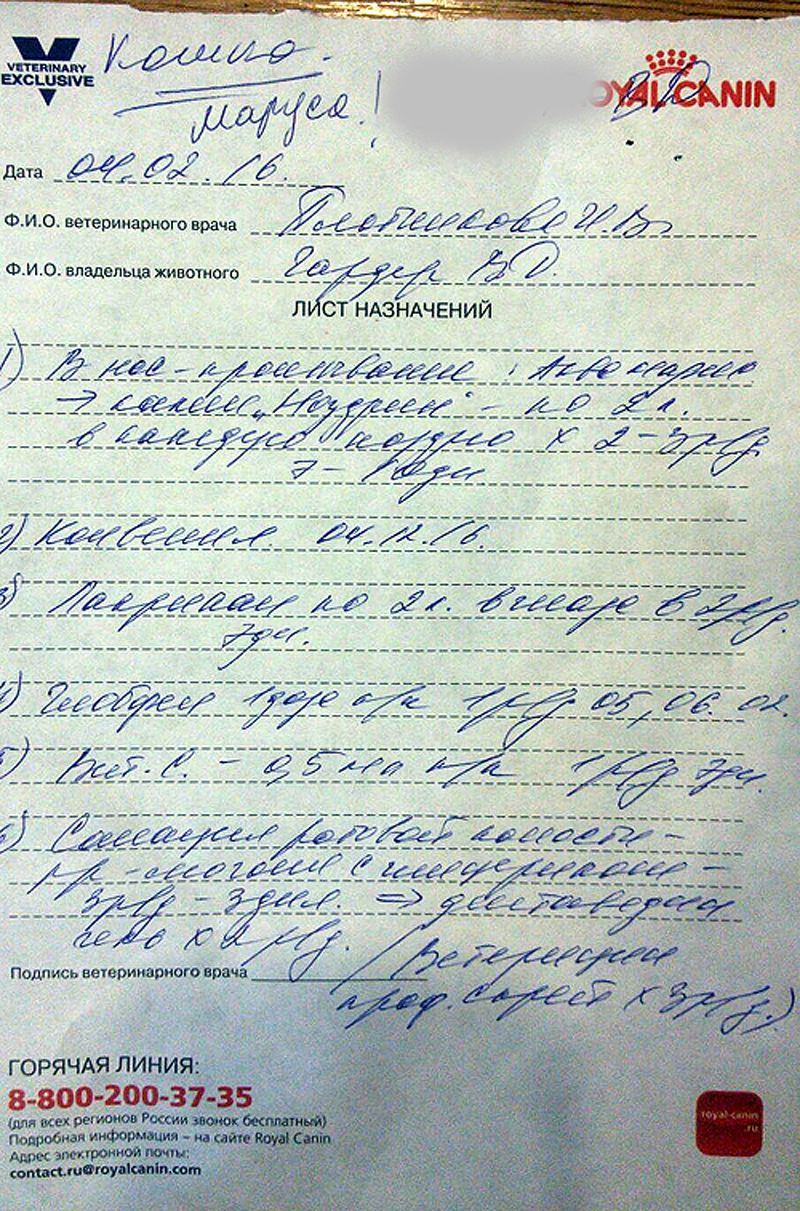 VETERINARY
EXCLUSIVE
Кошка
Маруся!
ROYAL CANIN
Дата 04.02.16.
Ф.И.О. ветеринарного врача Плотникова И.В.
Ф.И.О. владельца животного Гардер В.О.
ЛИСТ НАЗНАЧЕНИЙ
1) В нос - промывание: Аквамарис
→ капли „Ноздрин" - по 2 к.
в каждую ноздрю х 2-3 р/д
7-10дн
2) Конвения 04.12.16.
3) по 2 к. в глаза в 2 р/д.
7дн.
4) Глобфел 1доза п/к 1 р/д 05, 06. 02.
5) Вит. С. - 0,5 мл п/к 1 р/д 7дн.
6) Санация ротовой полости -
р-р с -
3 р/д - 3 дня. ⇒
гель х 2 р/д.
Подпись ветеринарного врача
х 3 р/д.)
ГОРЯЧАЯ ЛИНИЯ:
8-800-200-37-35
(для всех регионов России звонок бесплатный)
Подробная информация – на сайте Royal Canin
Адрес электронной почты:
contact.ru@royalcanin.com
royal-canin
.ru